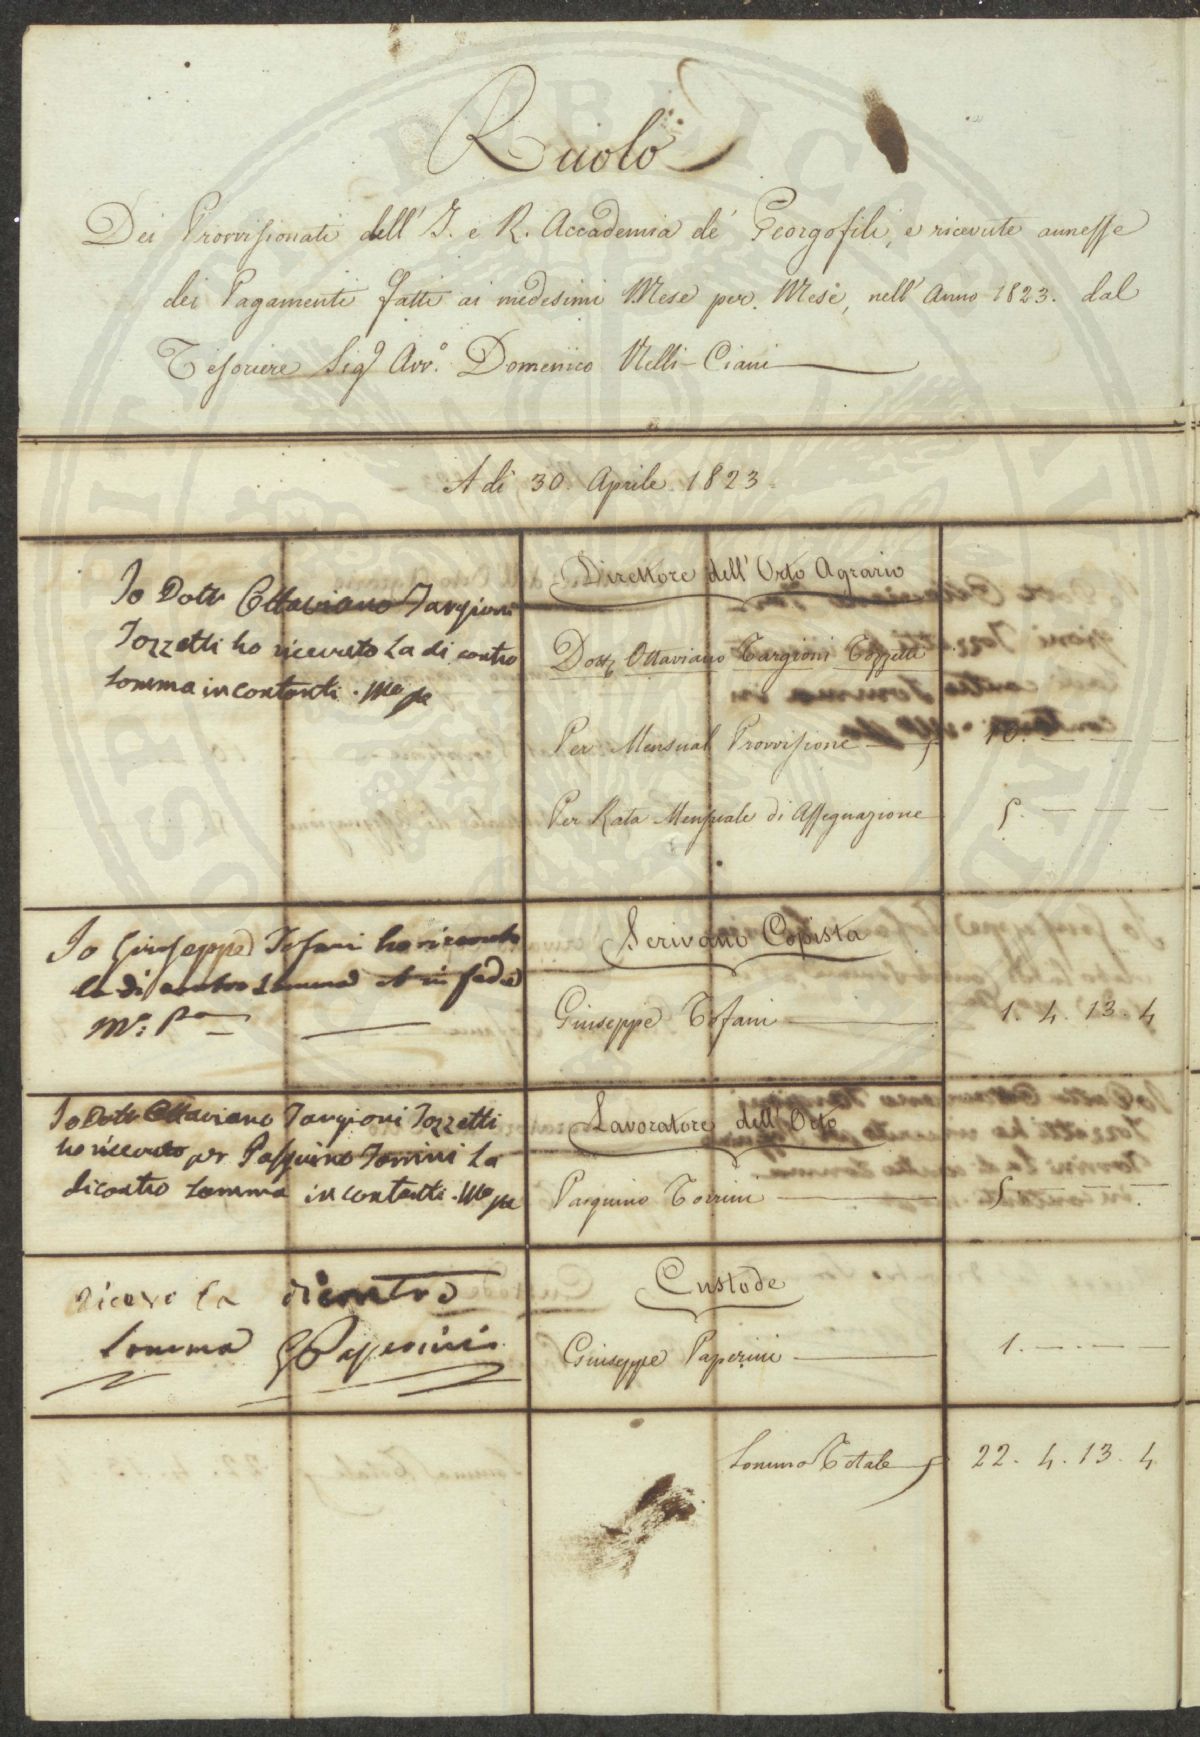 Ruolo
Dei Provvisionati dell' I. e R. Accademia de' Georgofili, e ricevute annesse
dei Pagamenti fatti ai medesimi Mese per Mese, nell' Anno 1823. dal
Tesoriere Sig.r Avv.o Domenico Nelli-Ciani
A di 30. Aprile. 1823.
Io Dott. Ottaviano Targioni
Tozzetti ho ricevuto la di contro
somma in contanti. Mo. pa.
Direttore dell' Orto Agrario
Dott. Ottaviano Targioni Tozzetti
Per Mensual Provvisione 10. — —
Per Rata Mensuale di Assegnazione 5. — —
Io Giuseppe Tofani ho ricevuto
la di contro somma
Scrivano Copista
Giuseppe Tofani 1. 4. 13. 4
Io Dott. Ottaviano Targioni Tozzetti
ho ricevuto per Pasquino Torrini la
dicontro somma in contanti. Mo. pa.
Lavoratore dell' Orto
Pasquino Torrini 5. — —
ricevi la dicontro
somma G Paperini
Custode
Giuseppe Paperini 1. — —
Somma Totale 22. 4. 13. 4